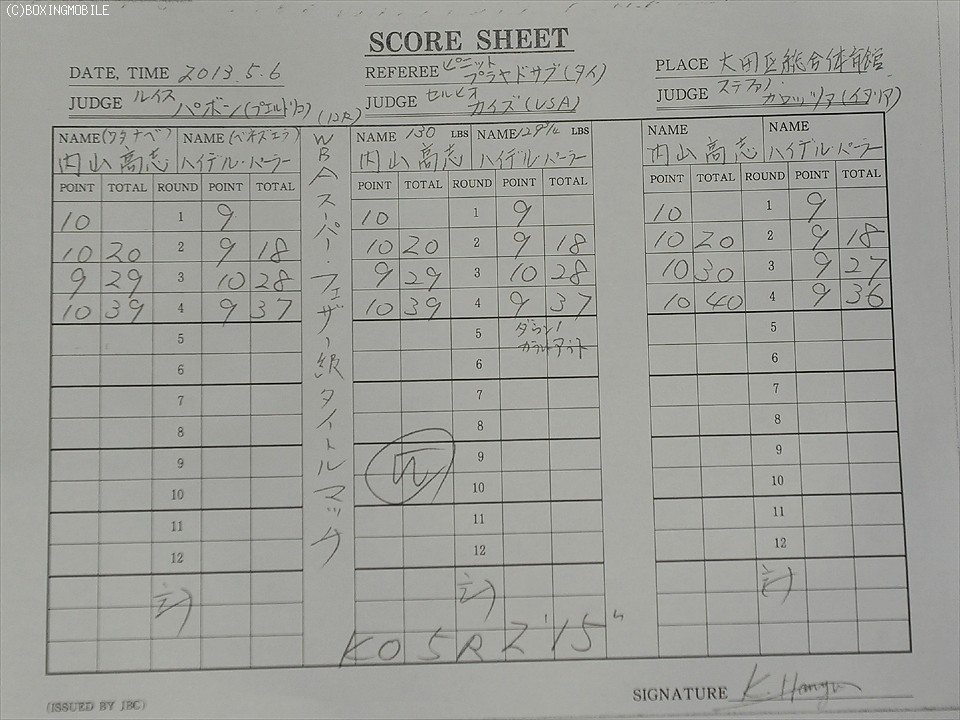 (C)BOXINGMOBILE
SCORE SHEET
DATE, TIME 2013.5.6
REFEREE ピニット プラヤドサブ(タイ)
PLACE 大田区総合体育館
JUDGE ルイス パボン(プエルトリコ)
(12R)
JUDGE セルヒオ カイズ(USA)
JUDGE ステファノ カロッツァ(イタリア)
NAME (ワタナベ) NAME (ベネズエラ)
内山高志 ハイデル・パーラー
POINT TOTAL ROUND POINT TOTAL
10 1 9
10 20 2 9 18
9 29 3 10 28
10 39 4 9 37
5
6
7
8
9
10
11
12
計
WBAスーパー・フェザー級タイトルマッチ
NAME 130 LBS NAME 129 1/4 LBS
内山高志 ハイデル・パーラー
POINT TOTAL ROUND POINT TOTAL
10 1 9
10 20 2 9 18
9 29 3 10 28
10 39 4 9 37
5 ダウン1
カウントアウト
6
7
8
9
10
11
12
計
NAME NAME
内山高志 ハイデル・パーラー
POINT TOTAL ROUND POINT TOTAL
10 1 9
10 20 2 9 18
10 30 3 9 27
10 40 4 9 36
5
6
7
8
9
10
11
12
計
KO 5R 2'15"
SIGNATURE
(ISSUED BY JBC)